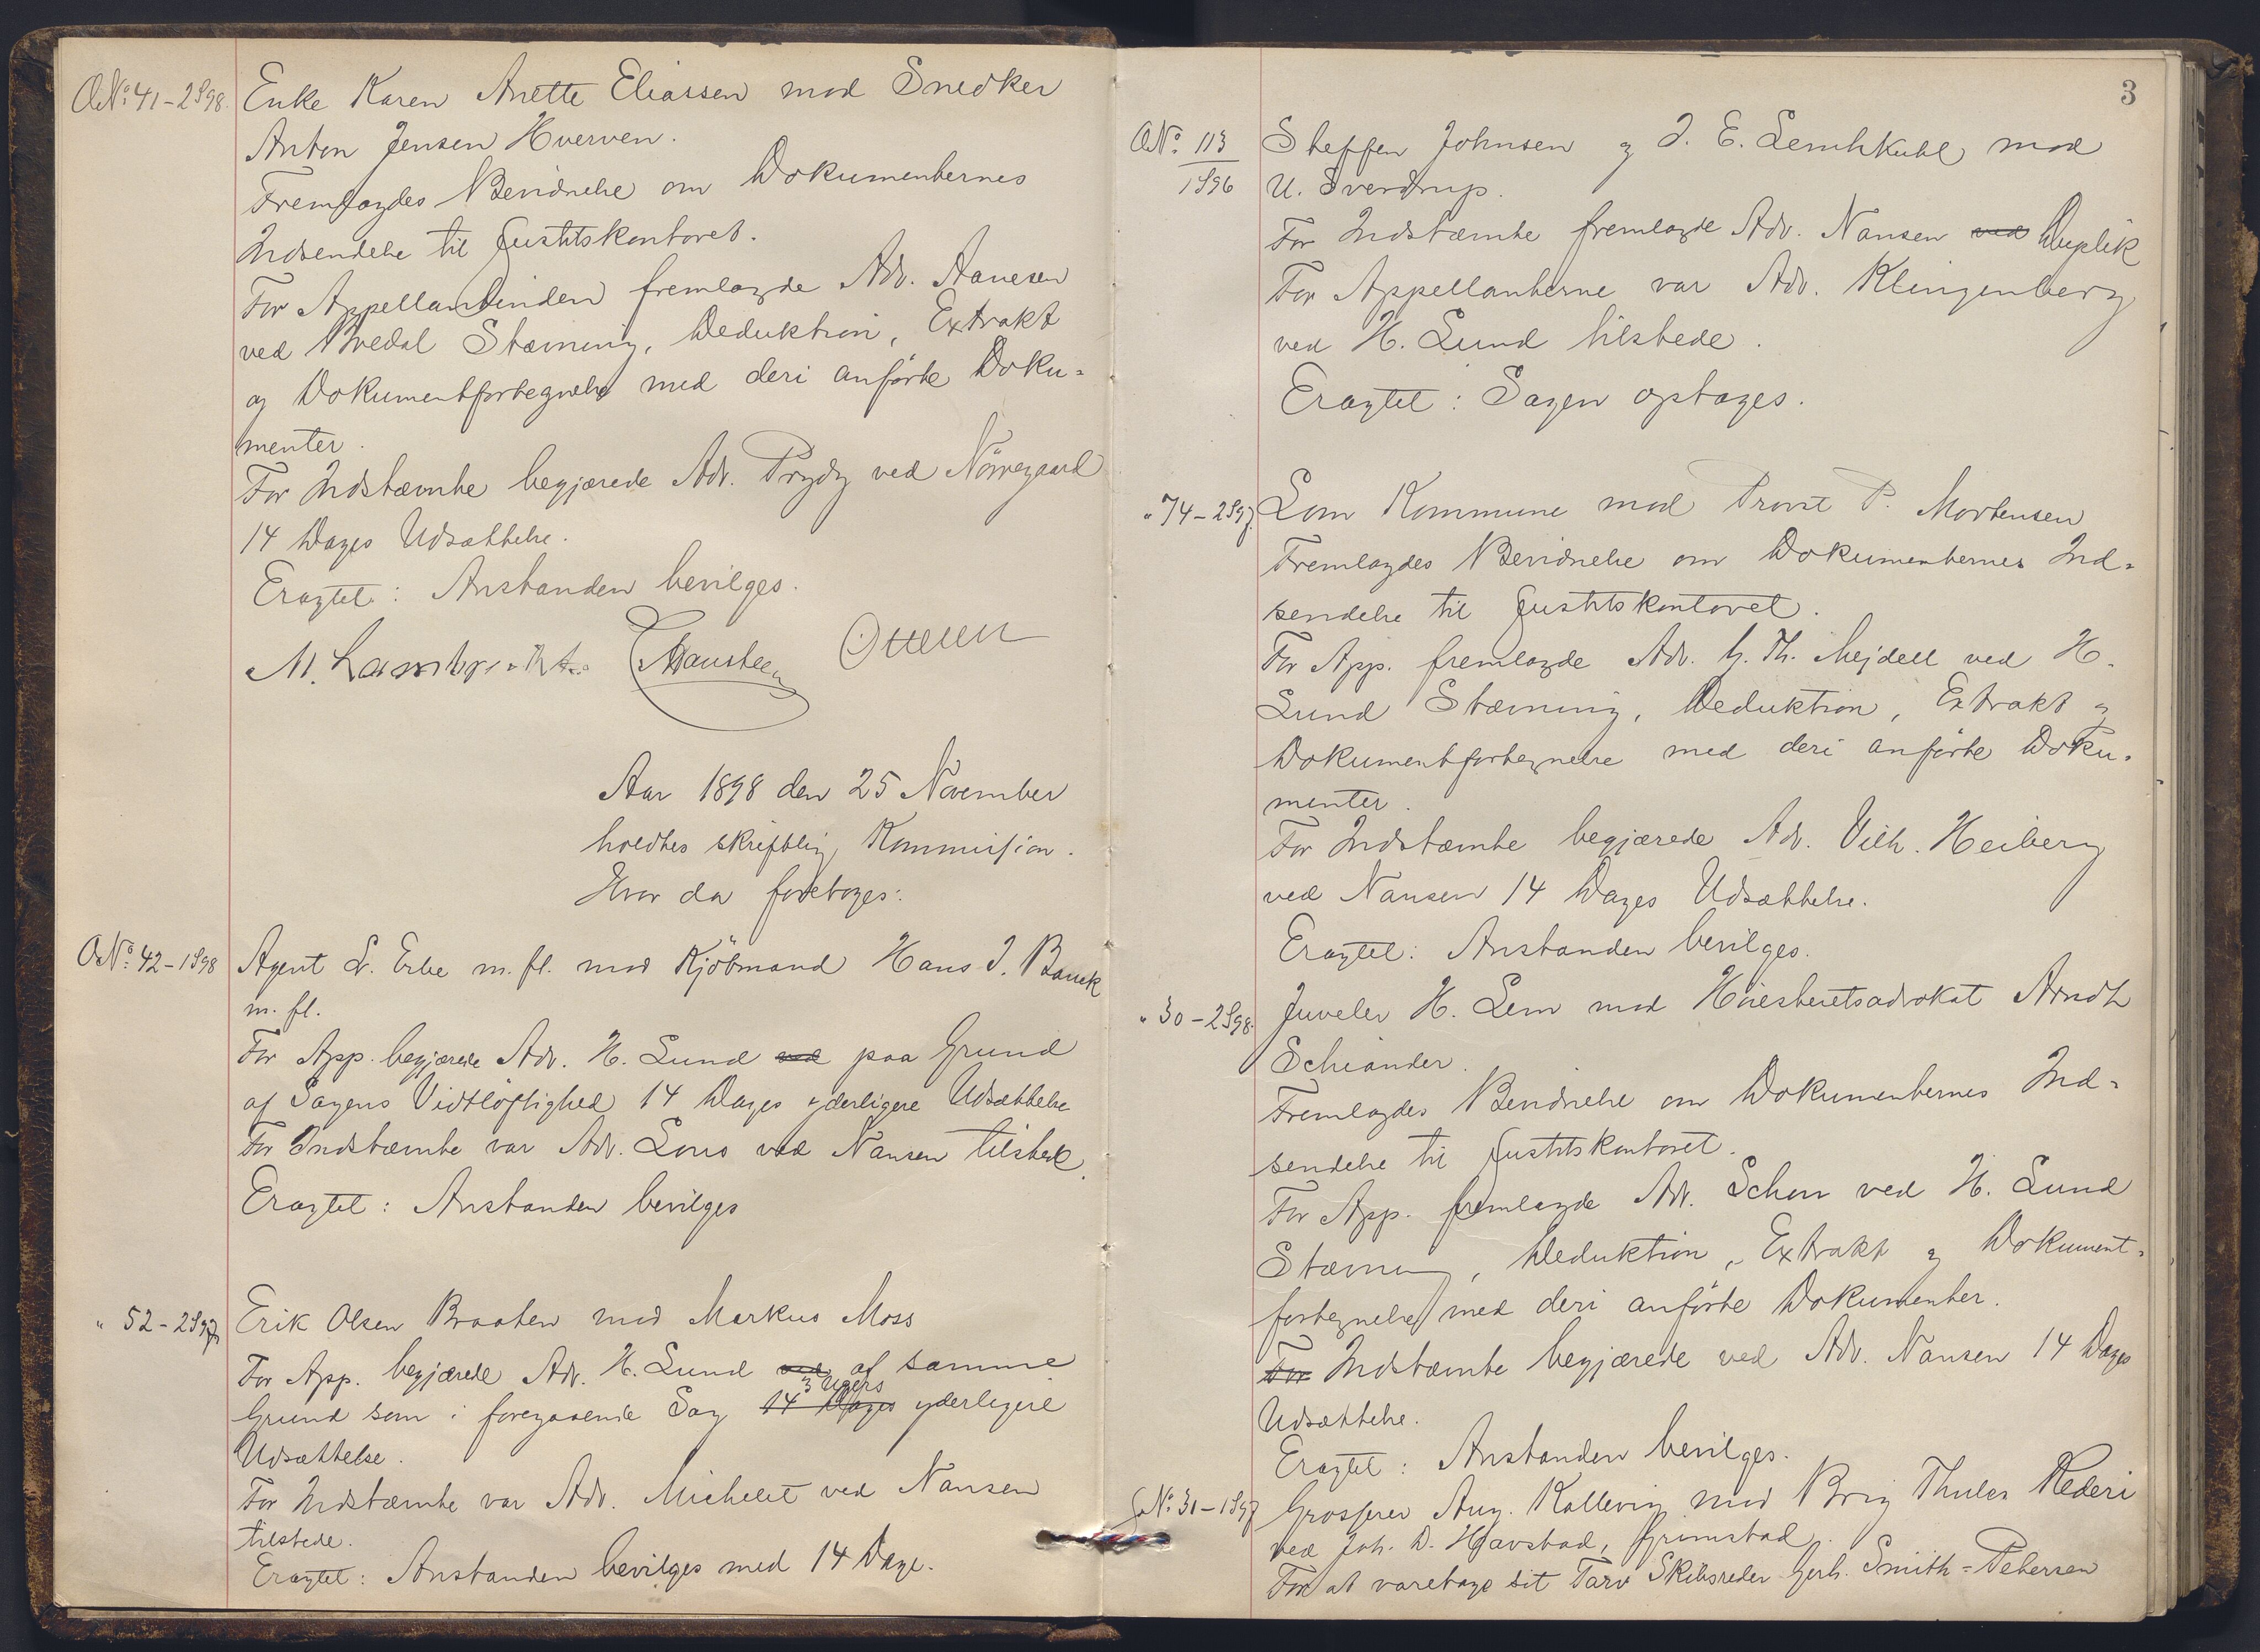 O.№ 41-2/98. Enke Karen Anette Eliassen mod Snedker
Anton Jensen Hverven.
Fremlagdes Bevidnelse om Dokumenternes
Indsendelse til Justitskontoret.
For Appellantinden fremlagde Adv. Aanesen
ved Bredal Stævning, Deduktion, Extrakt
og Dokumentfortegnelse med deri anførte Doku-
menter.
For Indstævnte begjærede Adv. Prydz ved Nørregaard
14 Dages Udsættelse.
Eragtet: Anstanden bevilges.
M. Lambrechts. Ottesen
Aar 1898 den 25 November
holdtes skriftlig Kommission.
Hvor da foretoges:
O.№ 42-1/98 Agent L. Erbe m. fl. mod Kjöbmand Hans J. Banck
m. fl.
For App. begjærede Adv. H. Lund ved paa Grund
af Sagens Vidtløftighed 14 Dages yderligere Udsættelse
For Indstævnte var Adv. Lous ved Nansen tilstede.
Eragtet: Anstanden bevilges
" 52-2/97 Erik Olsen Braaten mod Markus Moss
For App. begjærede Adv. H. Lund ved af samme
3 Ugers
Grund som i foregaaende Sag 14 Dages yderligere
Udsættelse.
For Indstævnte var Adv. Michelet ved Nansen
tilstede.
Eragtet: Anstanden bevilges med 14 Dage.
3
O.№ 113/1896 Steffen Johnsen og J. E. Lemhkuhl mod
U. Sverdrup.
For Indstævnte fremlagde Adv. Nansen ved Duplik
For Appellanterne var Adv. Klingenberg
ved H. Lund tilstede.
Eragtet: Sagen optages.
" 74-2/97 Lom Kommune mod Provst P. Mortensen
Fremlagdes Bevidnelse om Dokumenternes Ind-
sendelse til Justitskontoret.
For App. fremlagde Adv. G. Th. Mejdell ved H.
Lund Stævning, Deduktion, Extrakt og
Dokumentfortegnelse med deri anførte Doku-
menter.
For Indstævnte begjærede Adv. Vilh. Heiberg
ved Nansen 14 Dages Udsættelse.
Eragtet: Anstanden bevilges.
" 30-2/98. Juveler H. Lem mod Høiesteretsadvokat Arndt
Schiander.
Fremlagdes Bevidnelse om Dokumenternes Ind-
sendelse til Justitskontoret.
For App. fremlagde Adv. Schou ved H. Lund
Stævning, Deduktion, Extrakt og Dokument-
fortegnelse med deri anførte Dokumenter.
For Indstævnte begjærede ved Adv. Nansen 14 Dages
Udsættelse.
Eragtet: Anstanden bevilges.
G.№ 31-1/97 Grosserer Aug. Kallevig mod Brig Thules Rederi
ved Joh. D. Havstad, Grimstad.
For at varetage sit Tarv Skibsreder Gerh. Smith-Petersen